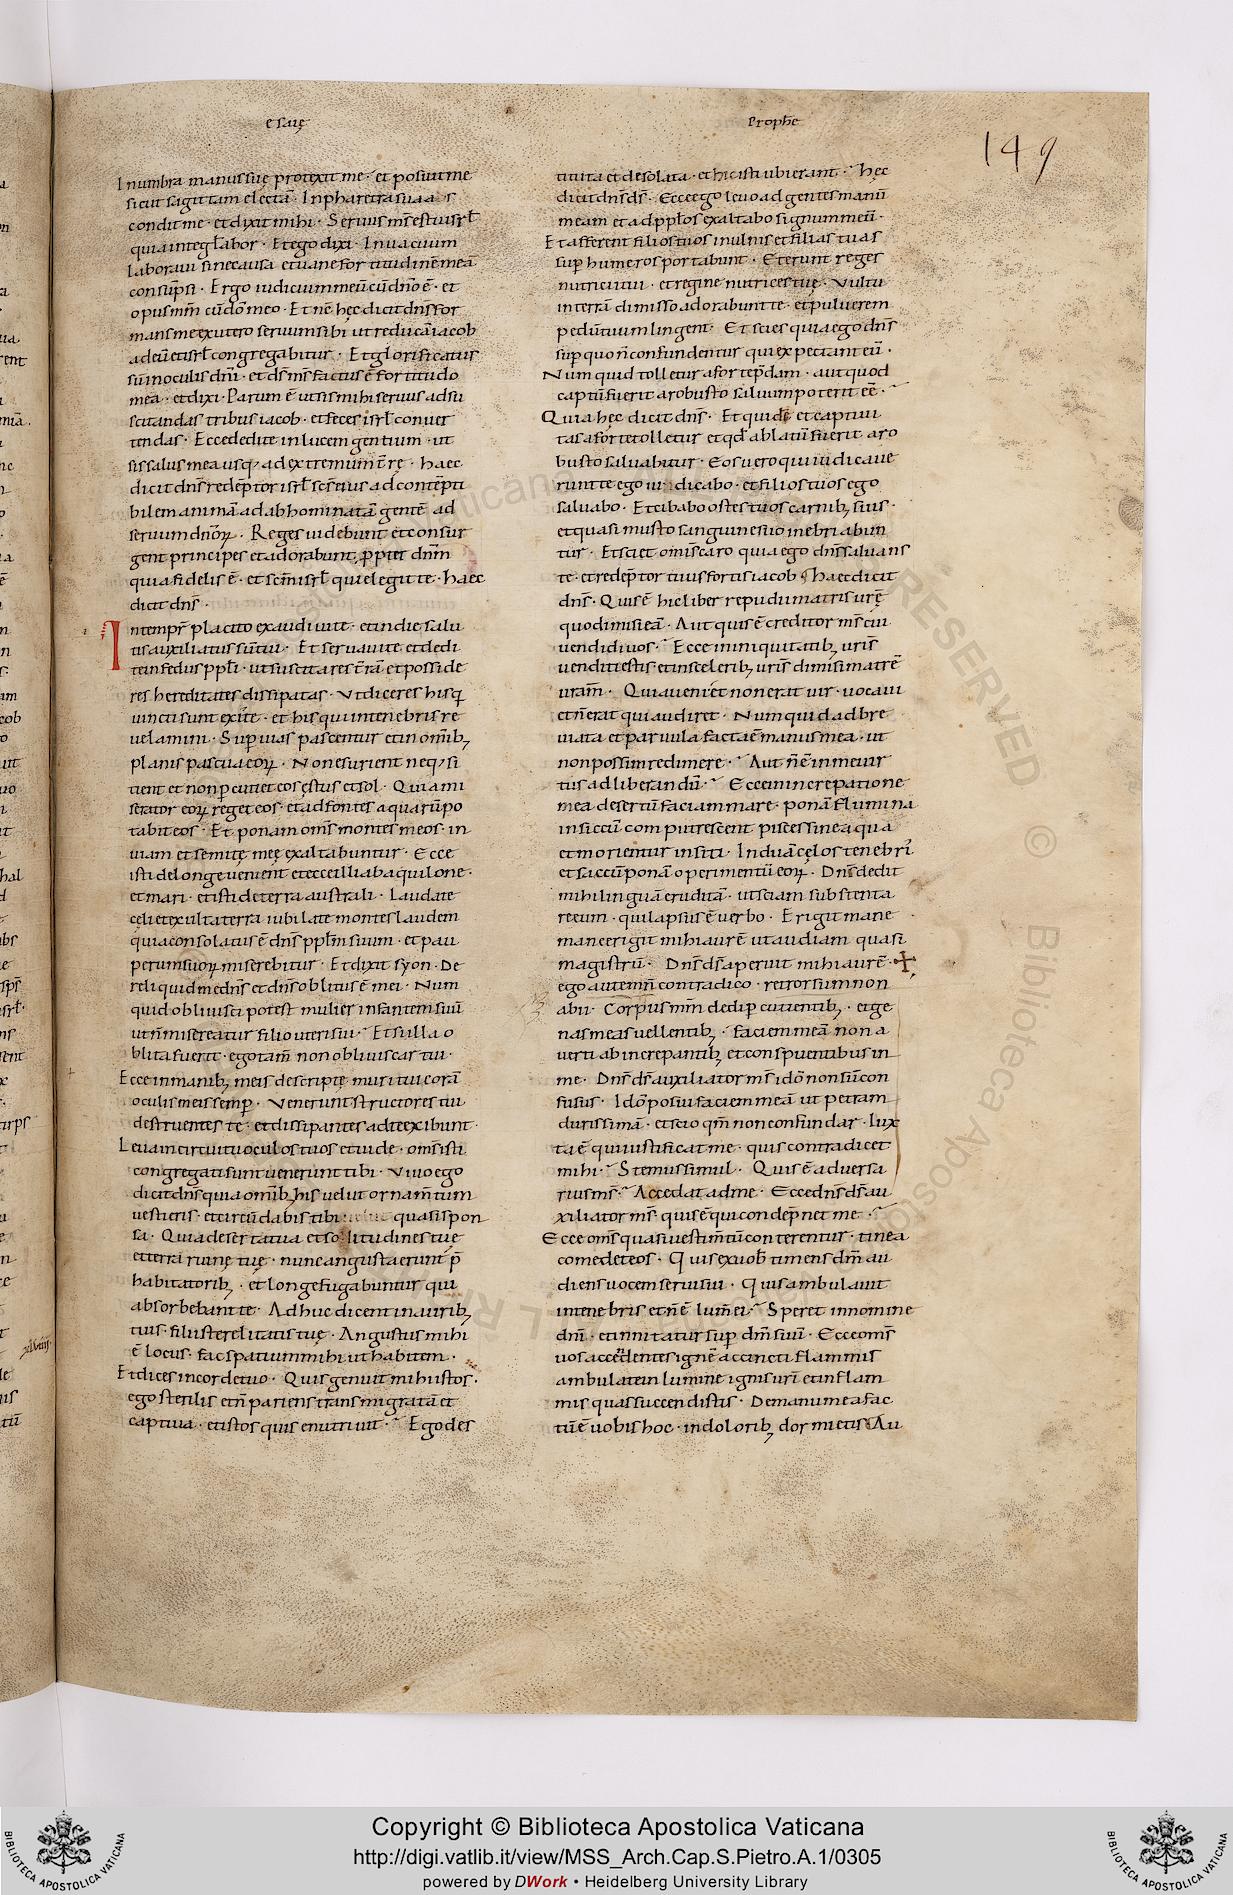 esaię
Prophe
149
In umbra manus suę protexit me · et posuit me
sicut sagittam electā · In pharetra sua as
condit me · et dixit mihi · Seruus mš es tu isrł
quia in te glabor · Et ego dixi · In uacuum
laboraui sine causa et uane fortitudinē meā
consūpsi · Ergo iudicium meū cū dn̄o ē · et
opus mm̄ cū dō meo · Et nc̄ hęc dicit dn̄s for
mans me ex utero seruum sibi ut reducā iacob
ad eū et isrł congregabitur · Et glorificatus
sū in oculis dn̄i · et ds̄ ms̄ factus ē fortitudo
mea · et dixi · Parum ē ut sis mihi seruus ad su
scitandas tribus iacob · et feces isrł conuer
tendas · Ecce dedi te in lucem gentium · ut
sis salus mea usq; ad extremum t̄rę · haec
dicit dn̄s redēptor isrł sc̄s eius ad contēpti
bilem animā ad abhominatā gentē ad
seruum dn̄oꝝ · Reges uidebunt et consur
gent principes et adorabunt ꝓpter dn̄m
quia fidelis ē · et sc̄m isrł qui elegit te · haec
dicit dn̄s ·
In tempr̄ placito exaudiui te · et in die salu
tis auxiliatus sū tui · Et seruaui te et dedi
te in fedus ppłi · ut suscitares t̄rā et posside
res hereditates dissipatas · Vt diceres his q̨
uincti sunt exite · et his qui in tenebris re
uelamini · Suꝑ uias pascentur et in omīb;
planis pascua eoꝝ · Non esurient neq; si
tient et non ꝑcutiet eos ęstus et sol · Quia mi
serator eoꝝ reget eos · et ad fontes aquarū po
tabit eos · Et ponam om̄s montes meos in
uiam et semitę męę exaltabuntur · Ecce
isti de longe uenient et ecce illi ab aquilone ·
et mari · et isti de terra australi · Laudate
cęli et exulta terra iubilate montes laudem
quia consolatus ē dn̄s ppłm suum · et pau
perum suoꝝ miserebitur · Et dixit syon · De
reliquid me dn̄s et dn̄s oblitus ē mei · Num
quid obliuisci potest mulier infantem suū
ut n̄ misereatur filio uteri sui · Et si illa o
blita fuerit · ego tam̄ non obliuiscar tui ·
Ecce in manib; meis descripsi te muri tui corā
oculis meis semꝑ · Venerunt structores tui
destruentes te · et dissipantes a te exibunt ·
Leua in circuitu oculos tuos et uide · om̄s isti
congregati sunt uenerunt tibi · Viuo ego
dicit dn̄s quia omīb; his uelut ornam̄tum
uestieris · et circūdabis tibi · quasi spon
sa · Quia deserta tua et solitudines tuę
et terra ruinę tuę · nunc angusta erunt p̄
habitatorib; · et longe fugabuntur qui
absorbebant te · Adhuc dicent in aurib;
tuis · filii sterelitatis tuę · Angustus mihi
ē locus · fac spatium mihi ut habitem ·
Et dices in corde tuo · Quis genuit mihi istos ·
ego sterilis et n̄ pariens transmigrata et
captiua · et istos quis enutriuit · Ego des
tituta et desolata · et hic isti ubi erant · hęc
dicit dn̄s ds̄ · Ecce ego leuo ad gentes manū
meam et ad ppłos exaltabo signum meū ·
Et afferent filios tuos in ulnis et filias tuas
suꝑ humeros portabunt · Et erunt reges
nutricii tui · et regine nutrices tuę · Vultu
in terrā dimisso adorabunt te · et puluerem
pedū tuum lingent · Et scies quia ego dn̄s
suꝑ quo n̄ confundentur qui expectant eū ·
Numquid tolletur a forte p̄dam · aut quod
captū fuerit a robusto saluum poterit ēē ·
Quia hęc dicit dn̄s · Et quidē et captiui
tas a forte tolletur et qđ ablatū fuerit a ro
busto saluabitur · Eos uero qui iudicaue
runt te ego iudicabo · et filios tuos ego
saluabo · Et cibabo ostes tuos carnib; suis ·
et quasi musto sanguine suo inebriabun
tur · Et sciet omīs caro quia ego dn̄s saluans
te · et redēptor tuus fortis iacob · haec dicit
dn̄s · Quis ē hic liber repudii matris urę̄
quo dimisi eā · Aut quis ē creditor ms̄ cui
uendidi uos · Ecce in iniquitatib; uris̄
uenditi estis et in scelerib; uris̄ dimisi matrē
uram̄ · Quia ueni et non erat uir · uocaui
et n̄ erat qui audiret · Numquid adbre
uiata et paruula facta ē manus mea · ut
non possim redimere · Aut n̄ ē in me uir
tus ad liberandū · Ecce in increpatione
mea desertū faciam mare · ponā flumina
in siccū computrescent pisces sine aqua
et morientur in siti · Induā cęlos tenebrī
et saccū ponā operimentū eoꝝ · Dn̄s dedit
mihi linguā eruditā · ut sciam substenta
re eum · qui lapsus ē uerbo · Erigit mane
mane erigit mihi aurē ut audiam quasi
magistrū · Dn̄s ds̄ aperuit mihi aurē ·
ego autem n̄ contradico · retrorsum non
abii · Corpus mm̄ dedi ꝑcutientib; · et ge
nas meas uellentib; · faciem meā non a
uerti ab increpantib; et conspuentibus in
me · Dn̄s ds̄ auxiliator ms̄ idō non sū con
fusus · Idō posui faciem meā ut petram
durissimā · et scio qm̄ non confundar · Iux
ta ē qui iustificat me · quis contradicet
mihi · Stemus simul · Quis ē aduersa
rius ms̄ · Accedat ad me · Ecce dn̄s ds̄ au
xiliator ms̄ quis ē qui condēpnet me ·
Ecce om̄s quasi uestim̄tū conterentur · tinea
comedet eos · Quis ex uob̄ timens dn̄m au
diens uocem serui sui · Quis ambulauit
in tenebris et n̄ ē lum̄ ei · Speret in nomine
dn̄i · et innitatur suꝑ dm̄ suū · Ecce om̄s
uos accēdentes ignē accincti flammis
ambulate in lumine ignis urī et in flam
mis quas succendistis · De manu mea fac
tū ē uobis hoc · in dolorib; dormietis · Au
Copyright © Biblioteca Apostolica Vaticana
http://digi.vatlib.it/view/MSS_Arch.Cap.S.Pietro.A.1/0305
powered by DWork • Heidelberg University Library
BIBLIOTECA APOSTOLICA VATICANA
BIBLIOTECA APOSTOLICA VATICANA